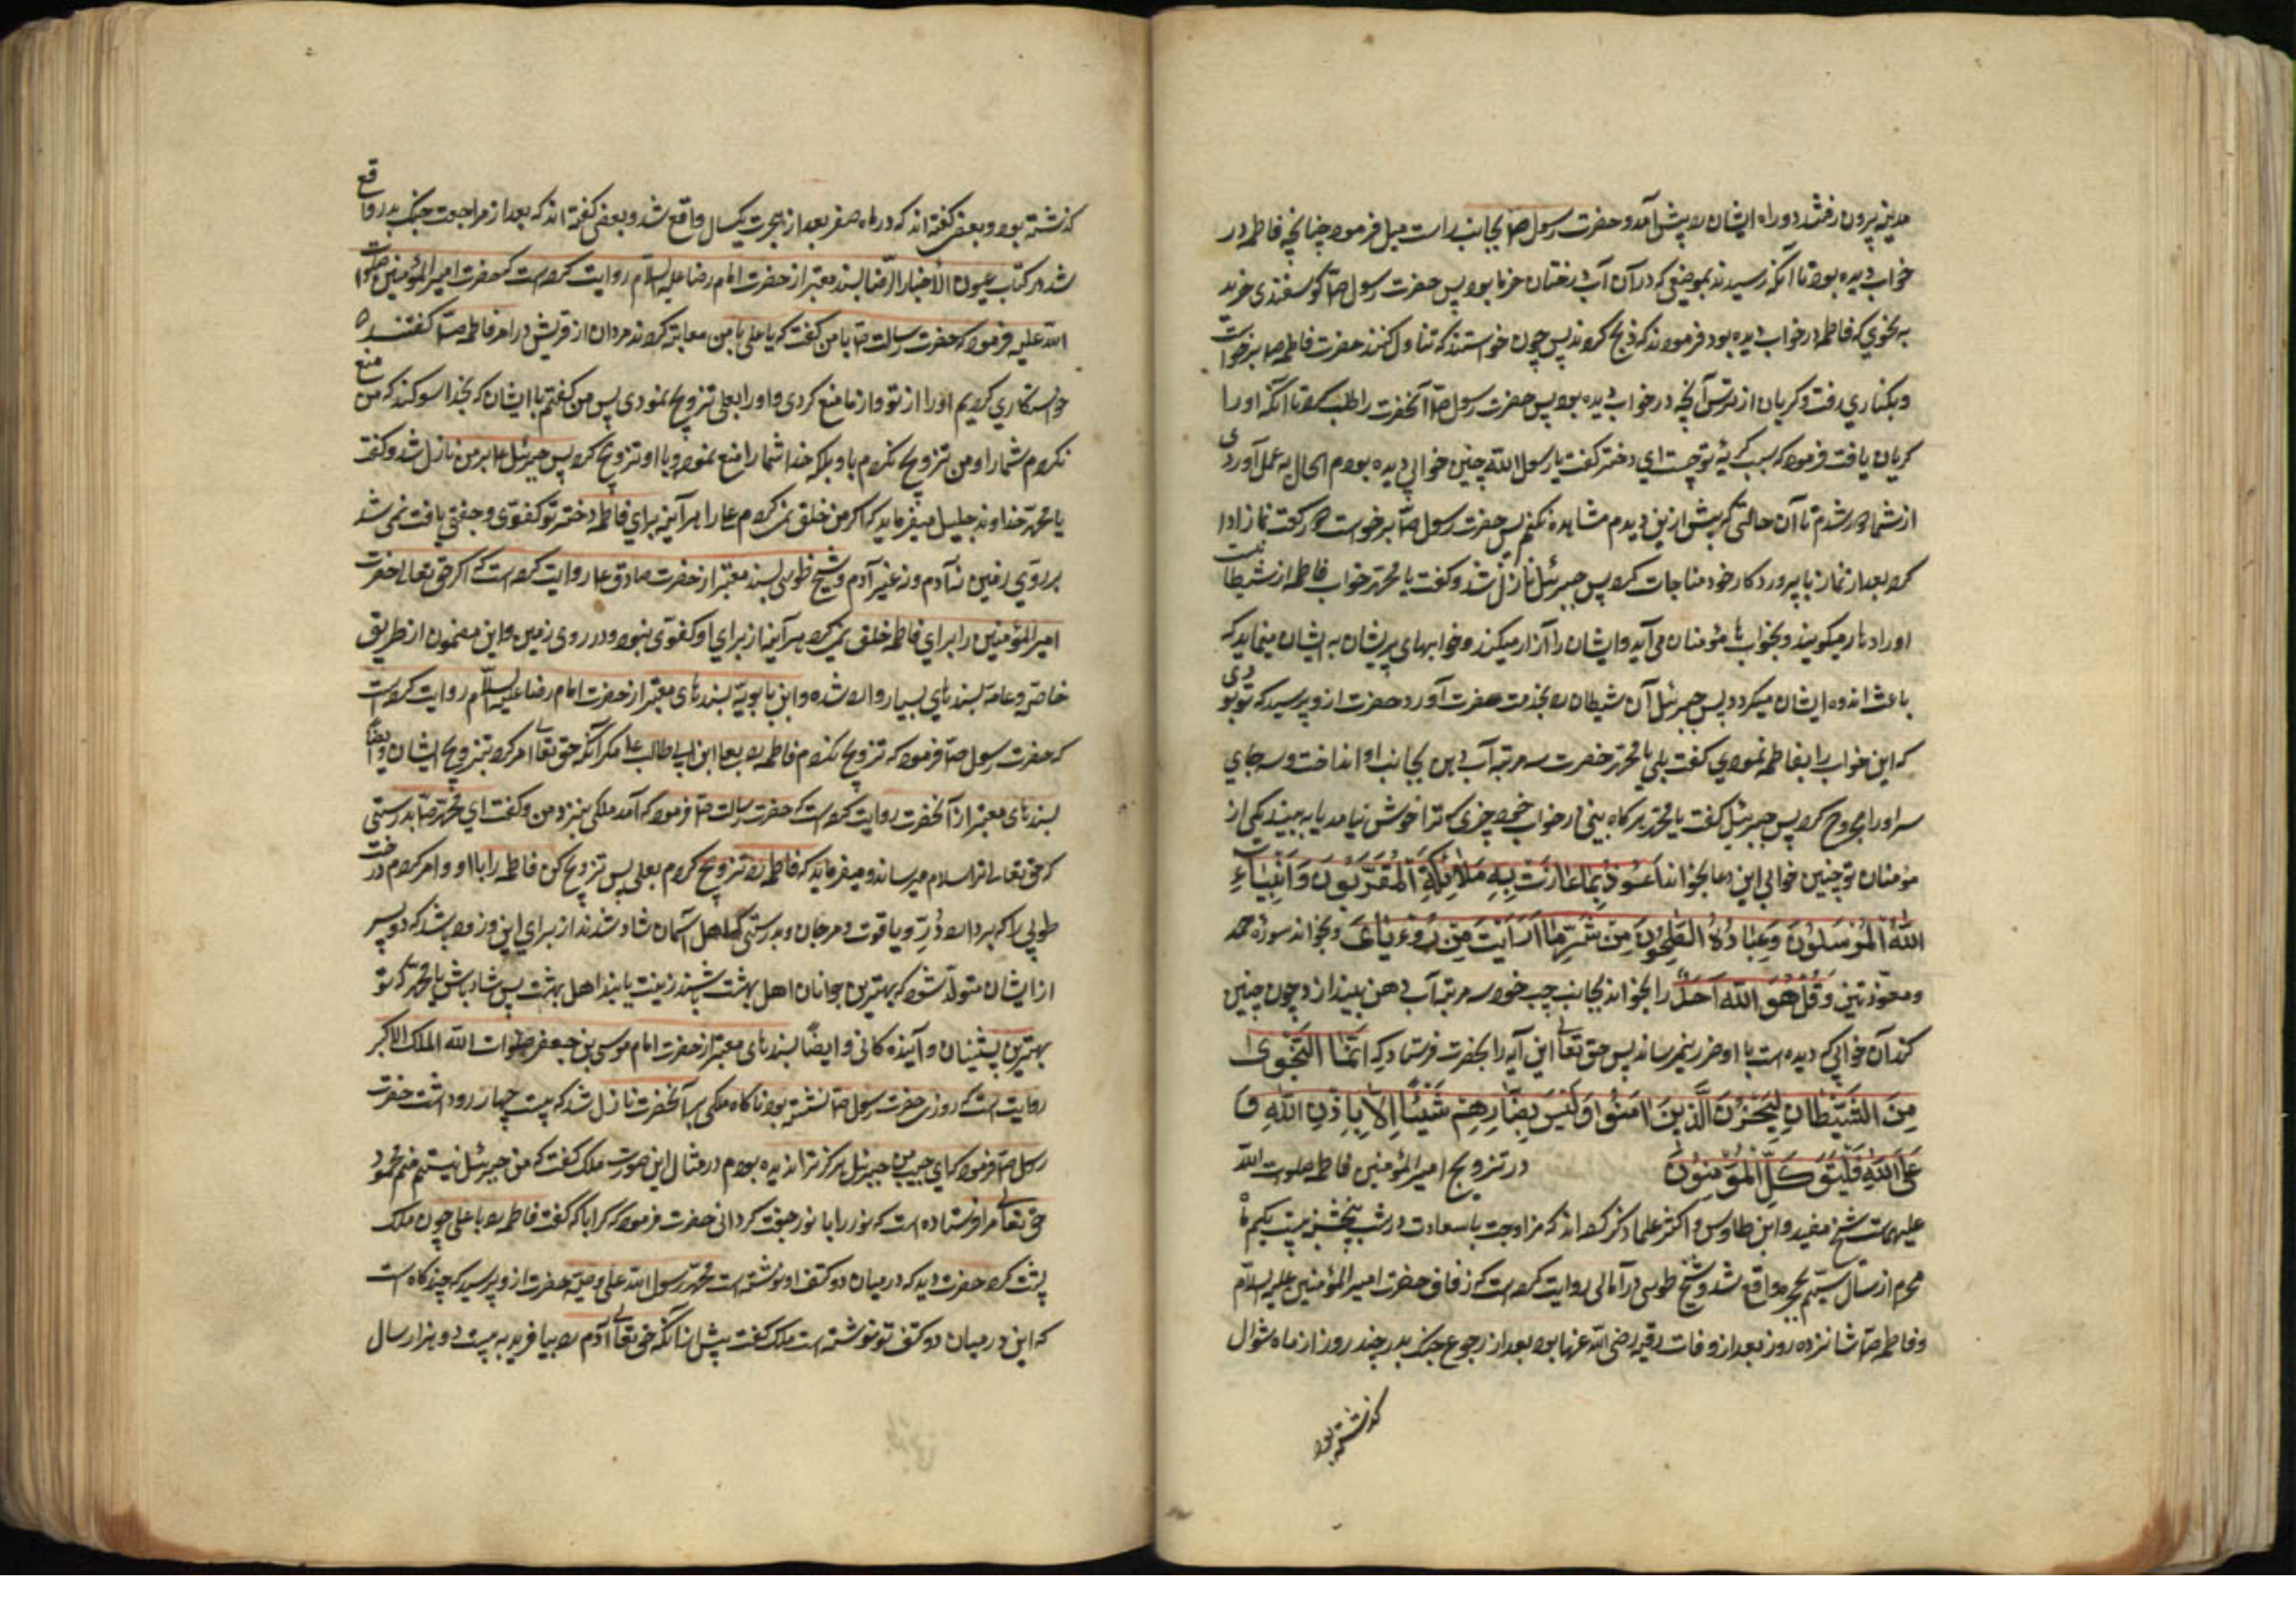 مدینه بیرون رفتند دو راه ایشان را پیش آمد و حضرت رسول ص بجانب راست میل فرمود چنانچه فاطمه در
خواب دیده بود تا آنکه رسیدند بموضعی که در آن آب و درختان خرما بود پس حضرت رسول ص گوسفندی خرید
به نحوی که فاطمه در خواب دیده بود فرمودند که ذبح کردند پس چون خواستند که تناول کنند حضرت فاطمه ص برخواست
و بکناری رفت و گریان از ترس آنچه در خواب دیده بود پس حضرت رسول ص آنحضرت را طلب کرد تا آنکه او را
گریان یافت فرمود که سبب گریهٔ تو چیست ای دختر گفت یا رسول الله چنین خوابی دیده بودم الحال به عمل آوردی
از شما دور شدم تا آن حالتی که پیش ازین دیدم مشاهده نکنم پس حضرت رسول ص برخوست دو رکعت نماز ادا
کرد بعد از نماز با پروردکار خود مناجات کرد پس جبرئیل نازل شد و گفت یا محمد خواب فاطمه از شیطانیست
او را دهار میگویند و بخواب مؤمنان می آید و ایشان را آزار میکند و خوابهای پریشان به ایشان مینماید که
باعث اندوه ایشان میکردد پس جبرئیل آن شیطان را بخدمت حضرت آورد حضرت ازو پرسید که تو بودی
که این خواب را بفاطمه نمودی گفت بلی یا محمد حضرت سه مرتبه آب دهن بجانب او انداخت و سه جای
سر او را مجروح کرد پس جبرئیل گفت یا محمد هرکاه بینی در خواب خود چیزی که ترا خوش نیامد یا به بیند یکی از
مؤمنان تو چنین خوابی این دعا بخواند اَعُوذُ بِمَا عَاذَتْ بِهِ مَلَائِکَةُ الْمُقَرَّبُونَ وَاَنْبِیَاءِ
اللهُ الْمُرْسَلُونَ وَعِبَادُهُ الصّٰلِحُونَ مِنْ شَرِّ مَا رَاَیْتُ مِنْ رُوءْیَایَ و بخواند سورهٔ حمد
و معوذتین و قُلْ هُوَ اللهُ اَحَدٌ را بخواند بجانب چپ خود سه مرتبه آب دهن بیندازد چون چنین
کند آن خوابی که دیده است با او ضرر نمیرساند پس حق تعالی این آیه را بحضرت فرستاد که اِنَّمَا النَّجْوٰی
مِنَ الشَّیْطَانِ لِیَحْزُنَ الَّذِینَ اٰمَنُوا وَلَیْسَ بِضَارِّهِمْ شَیْئًا اِلَّا بِاِذْنِ اللهِ وَ
عَلَی اللهِ فَلْیَتَوَکَّلِ الْمُؤْمِنُونَ در تزویج امیرالمؤمنین فاطمه صلوات الله
علیهماست شیخ مفید و ابن طاوس و اکثر علما ذکر کرده اند که مزاوجت با سعادت در شب پنجشنبه بیست یکم ماه
محرم از سال سیم هجرت واقع شد و شیخ طوسی در امالی روایت کرده است که زفاف حضرت امیرالمؤمنین علیه السلام
و فاطمه ص شانزده روز بعد از وفات رقیه رضی الله عنها بود بعد از رجوع جنک بدر چند روز از ماه شوال
گذشته بود
گذشته بود و بعضی گفته اند که در ماه صفر بعد از هجرت یکسال واقع شد و بعضی گفته اند که بعد از مراجعت جنک بدر واقع
شد در کتاب عیون الاخبار الرضا بسند معتبر از حضرت امام رضا علیه السلام روایت کرده است که حضرت امیرالمؤمنین صلوات
الله علیه فرمود که حضرت رسالت ص با من گفت که یا علی با من معاتبه کردند مردان از قریش در امر فاطمه ص گفتند
خواستکاری کردیم او را از تو و از ما منع کردی و او را بعلی تزویج نمودی پس من گفتم با ایشان که بخدا سوکند که من منع
نکردم شما را و من تزویج نکردم باو بلکه خدا شما را منع نموده و با او تزویج کرد پس جبرئیل ع بر من نازل شد و گفت
یا محمد خداوند جلیل میفرماید که اگر من خلق نمیکردم علی را هر آینه برای فاطمه دختر تو کفوی و جفتی یافت نمی شد
بر روی زمین نه آدم و نه غیر آدم و شیخ طوسی بسند معتبر از حضرت صادق ع روایت کرده است که اگر حق تعالی حضرت
امیرالمؤمنین را برای فاطمه خلق نمیکرد هر آینه از برای او کفوی نبود در روی زمین و این مضمون از طریق
خاصه و عامه بسندهای بسیار وارد شده و ابن بابویه بسندهای معتبر از حضرت امام رضا علیه السلام روایت کرده است
که حضرت رسول ص فرمود که تزویج نکردم فاطمه را بعلی ابن ابی طالب ع مگر آنکه حق تعالی امر کرد بتزویج ایشان و ایضاً
بسندهای معتبر از آنحضرت روایت کرده است که حضرت رسالت ص فرمود که آمد ملکی بنزد من و گفت ای محمد ص بدرستی
که حق تعالی ترا سلام میرساند و میفرماید که فاطمه را تزویج کردم بعلی پس تزویج کن فاطمه را با او و امر کردم درخت
طوبی را که بردارد دُرّ و یاقوت و مرجان و بدرستی که اهل آسمان شاد شدند از برای این و زود باشد که دو پسر
از ایشان متولد شود که بهترین جوانان اهل بهشت باشند زینت یابند اهل بهشت پس شاد باش یا محمد که تو
بهترین پیشینیان و آینده کانی و ایضاً بسندهای معتبر از حضرت امام موسی بن جعفر صلوات الله الملک الاکبر
روایت است که روزی حضرت رسول ص نشسته بود ناکاه ملکی بر آنحضرت نازل شد که بیست چهار رو داشت حضرت
رسول ص فرمود که ای حبیب من جبرئیل هرکز ترا ندیده بودم در مثال این صورت ملک گفت که من جبرئیل نیستم منم محمود
حق تعالی مرا فرستاده است که نور را با نور جفت کردانی حضرت فرمود که کرا با که گفت فاطمه را با علی چون ملک
پشت کرد حضرت دید که در میان دو کتف او نوشته است محمد رسول الله علی وصیه حضرت ازو پرسید که چند کاه است
که این در میان دو کتف تو نوشته است ملک گفت پیش از آنکه حق تعالی آدم را بیافریند به بیست دو هزار سال